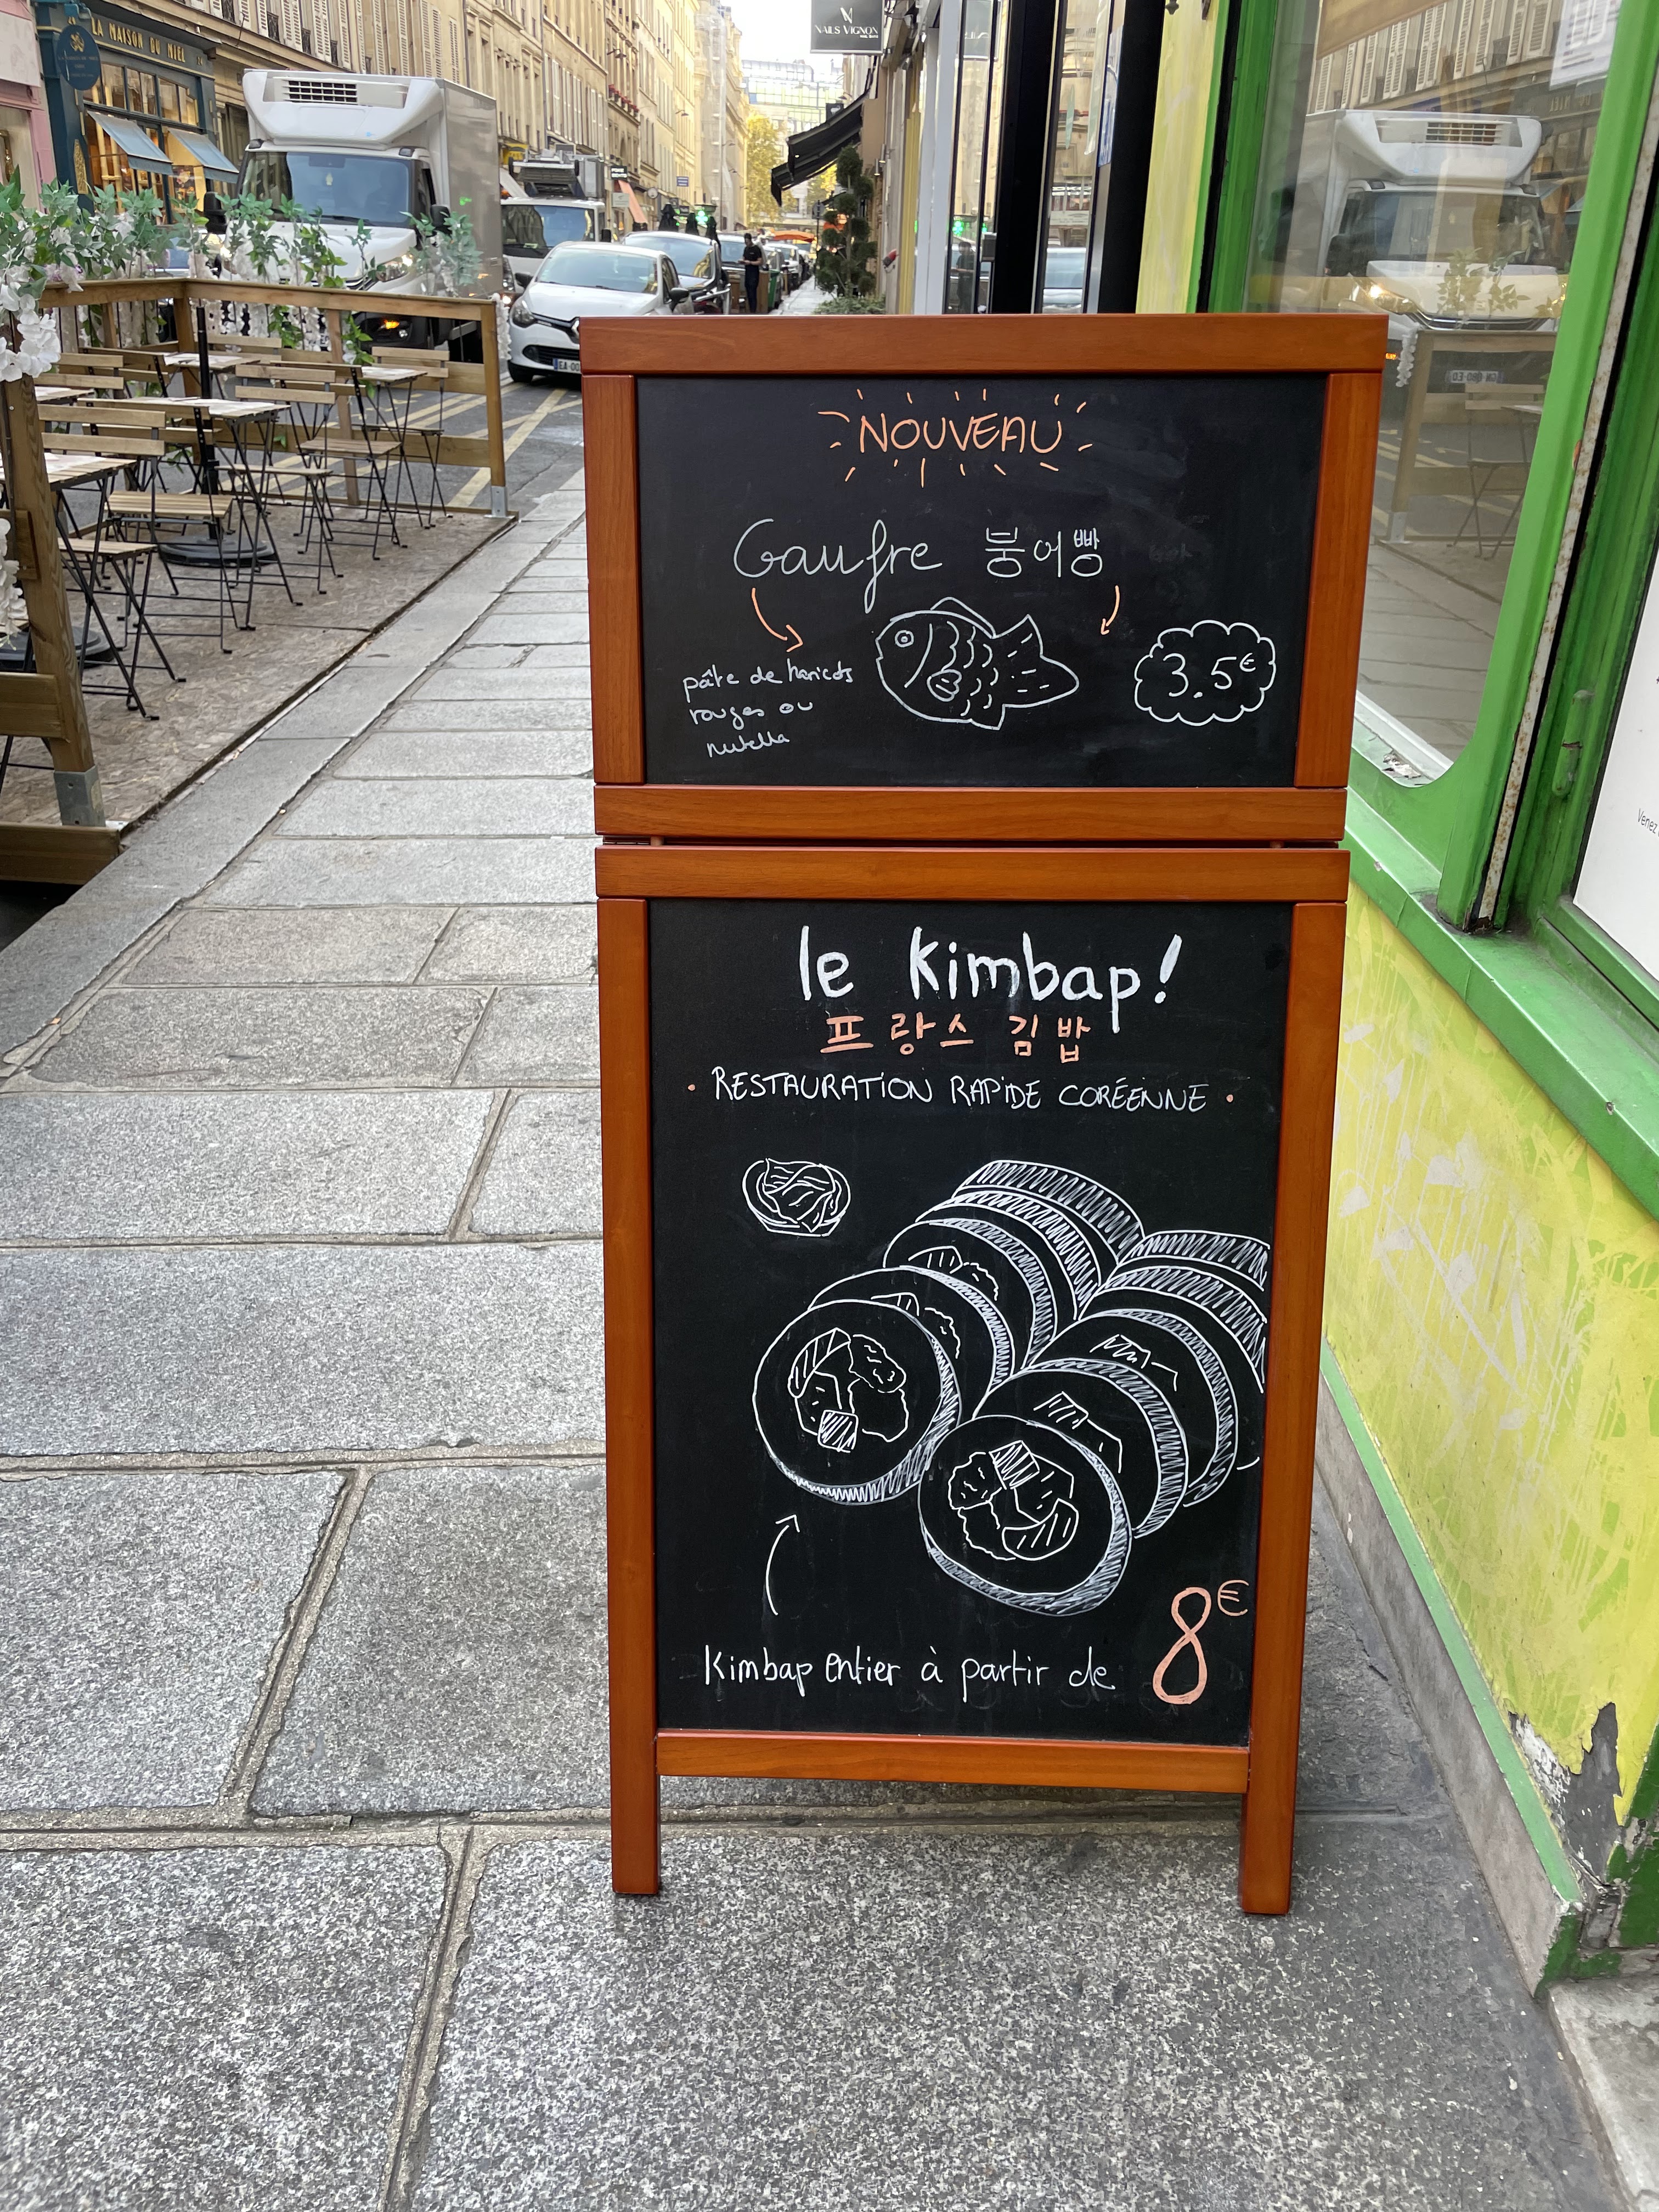 LA MAISON DU MIEL
NAILS VIGNON
NOUVEAU
Gaufre 붕어빵
pâte de haricots
rouges ou
nutella
3.5€
le Kimbap!
프랑스 김밥
• RESTAURATION RAPIDE CORÉENNE •
Kimbap entier à partir de 8€
Venez